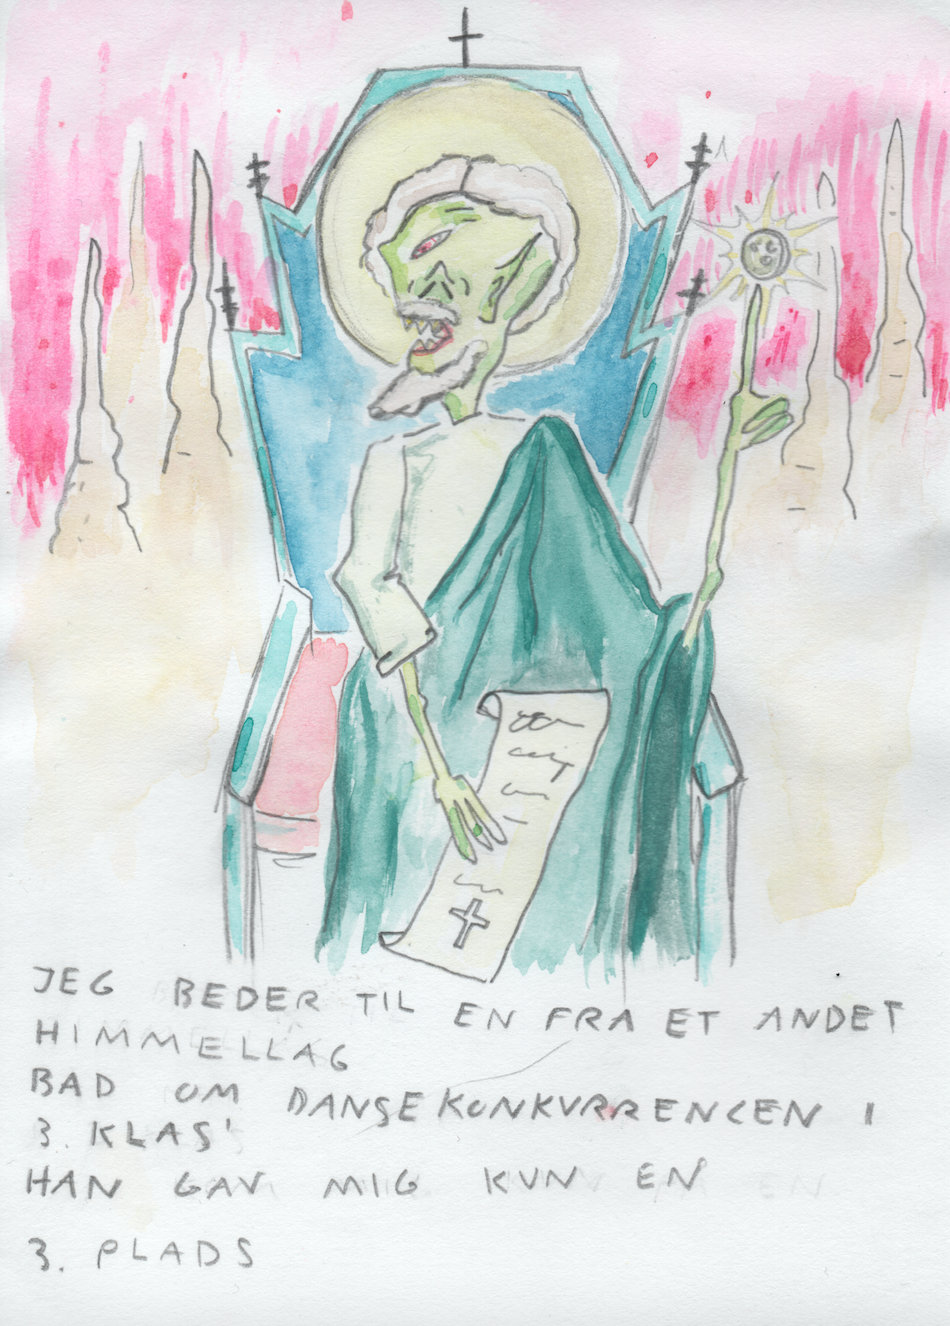 JEG BEDER TIL EN FRA ET ANDET
HIMMELLAG
BAD OM DANSEKONKURRENCEN I
3. KLAS'
HAN GAV MIG KUN EN
3. PLADS